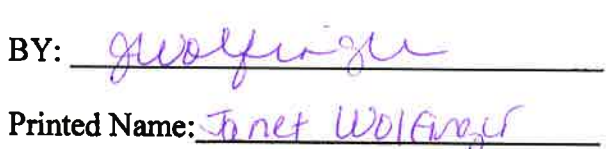 BY: JWolfinger
Printed Name: Janet Wolfinger